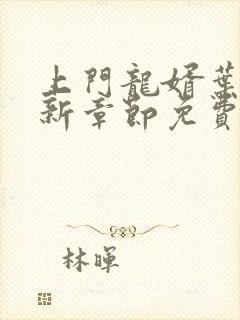 上門龍婿葉
新章節免費
林暉